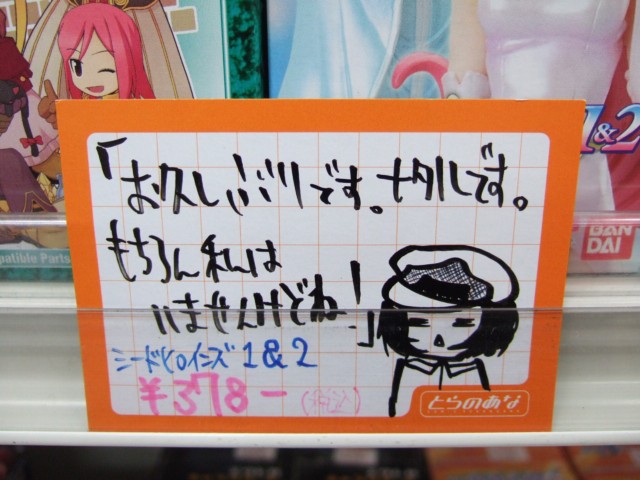 「お久しぶりです。ナタルです。
もちろん私は
いませんけどね!」
シードヒロインズ1&2
¥378-
(税込)
とらのあな
1&2
BAN
DAI
patible Parts